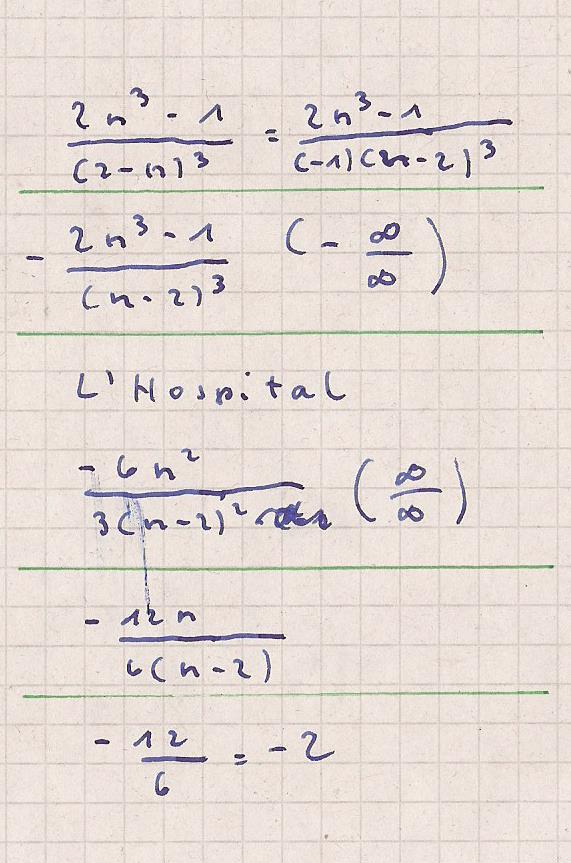 2n³ - 1 / (2-n)³ = 2n³ - 1 / (-1)(n-2)³
- 2n³ - 1 / (n-2)³ (- ∞/∞)
L'Hospital
- 6n² / 3(n-2)² (∞/∞)
- 12n / 6(n-2)
- 12/6 = -2